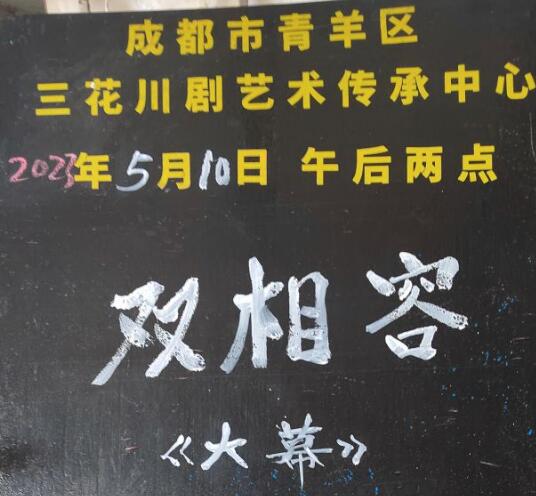 成都市青羊区
三花川剧艺术传承中心
2023年5月10日 午后两点
双相容
《大幕》